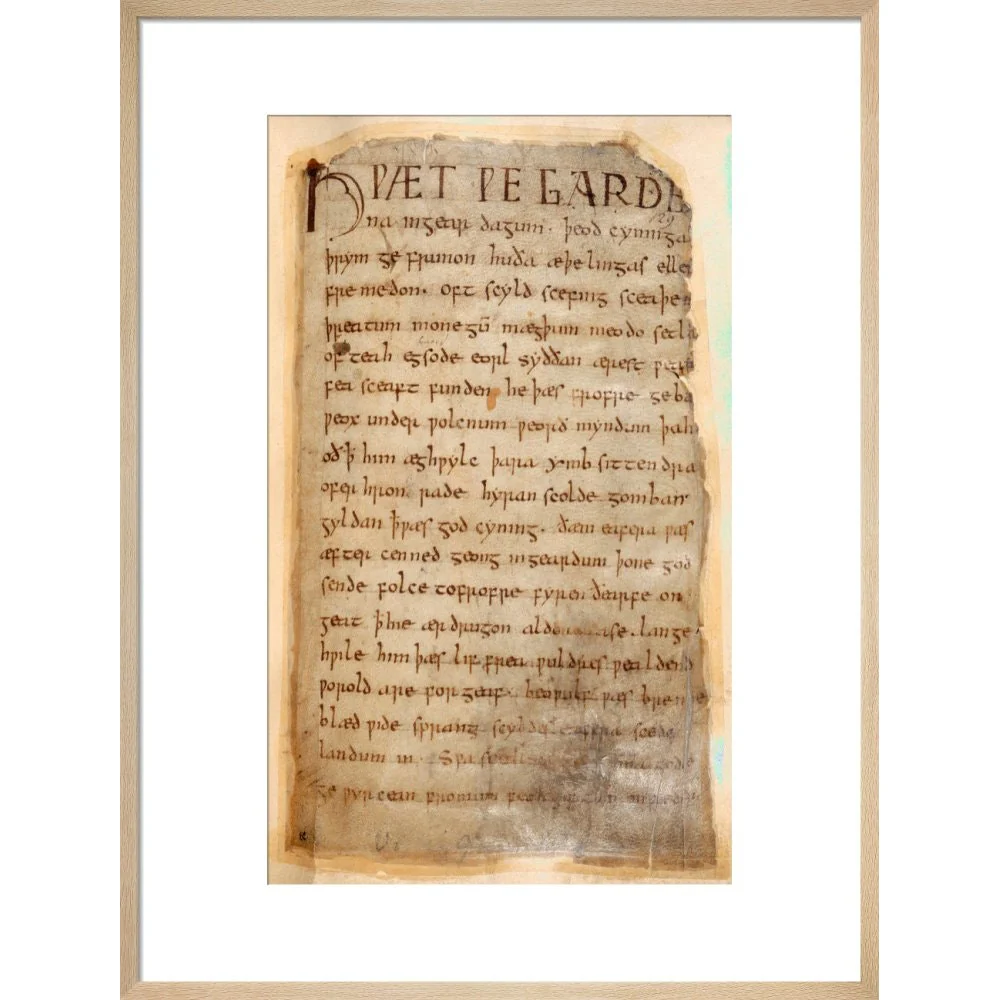 HǷÆT ǷE GARDE
na in gear dagum. þeod cyninga
þrym ge frunon huða æþelingas ellen
fre medon. oft scyld scefing sceaþen
þreatum monegū mægþum meodo setla
of teah egsode eorl syððan ærest ƿear
fea sceaft funden he þæs frofre geba
ƿeox under ƿolcnum ƿeorð myndum þah
oð ꝥ him æghƿylc þara ymb sittendra
ofer hron rade hyran scolde gomban
gyldan ꝥ ƿæs god cyning. ðæm eafera ƿæs
æfter cenned geong in geardum þone god
sende folce to frofre fyren ðearfe on
geat ꝥ hie ær drugon aldor ase. lange
hƿile him þæs lif frea ƿuldres ƿealdend
ƿorold are for geaf. beoƿulf ƿæs breme
blæd ƿide sprang scyldes eafera scede
landum in. Sƿa guma gode
ge ƿyrcean fromum feoh